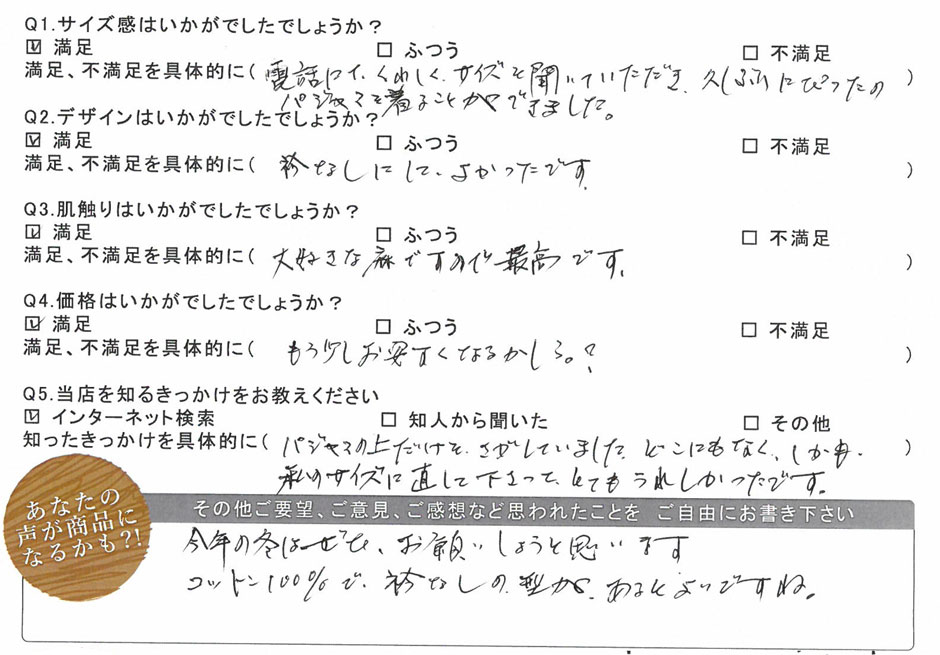 Q1.サイズ感はいかがでしたでしょうか？
☑ 満足 □ ふつう □ 不満足
満足、不満足を具体的に( 電話にて、くわしく、サイズを聞いていただき、久しぶりにぴったりの )
パジャマを着ることができました。
Q2.デザインはいかがでしたでしょうか？
☑ 満足 □ ふつう □ 不満足
満足、不満足を具体的に( 衿なしにして、よかったです。 )
Q3.肌触りはいかがでしたでしょうか？
☑ 満足 □ ふつう □ 不満足
満足、不満足を具体的に( 大好きな麻ですので最高です。 )
Q4.価格はいかがでしたでしょうか？
☑ 満足 □ ふつう □ 不満足
満足、不満足を具体的に( もう少しお安すくなるかしら。？ )
Q5.当店を知るきっかけをお教えください
☑ インターネット検索 □ 知人から聞いた □ その他
知ったきっかけを具体的に( パジャマの上だけを、さがしていました、どこにもなく、しかも、 )
私のサイズに直して下さって、とてもうれしかったです。
あなたの
声が商品に
なるかも？！
その他ご要望、ご意見、ご感想など思われたことを ご自由にお書き下さい
今年の冬はぜひ、お願いしようと思います
コットン100％で、衿なしの、型が、あるとよいですね。